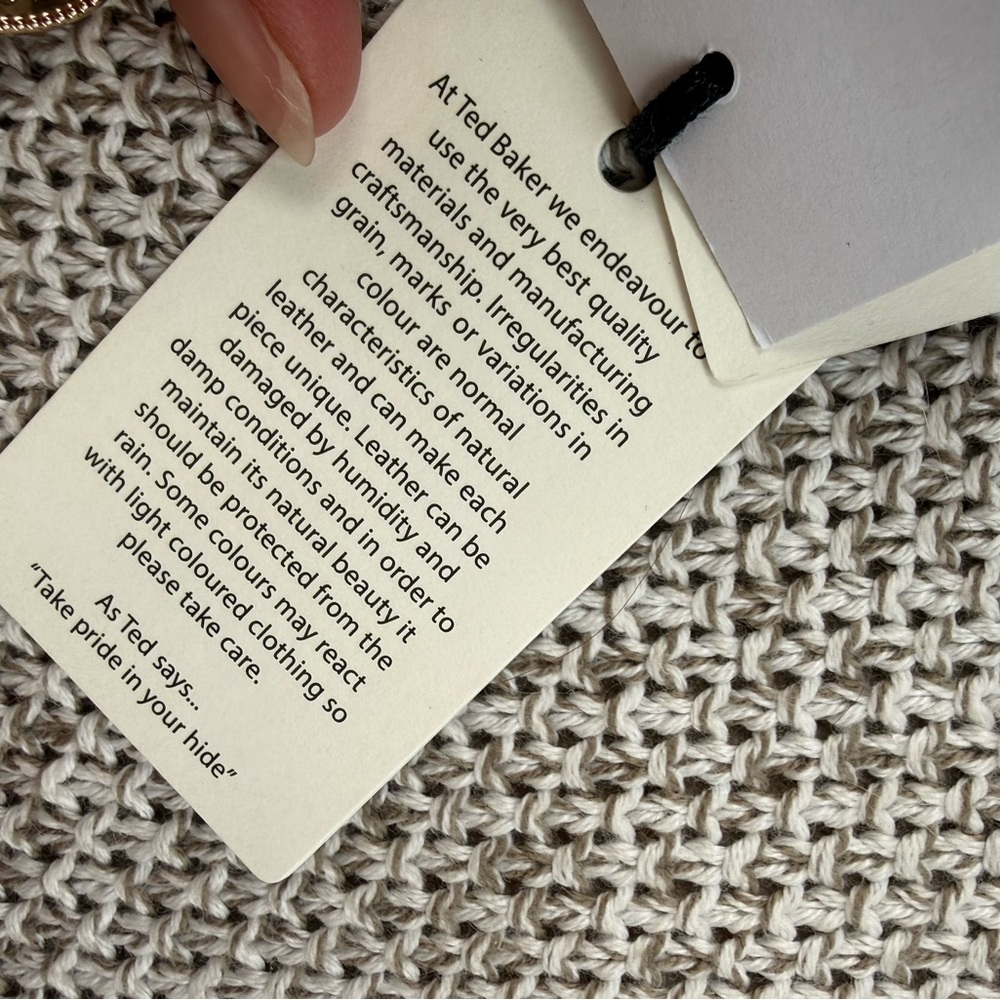 At Ted Baker we endeavour to
use the very best quality
materials and manufacturing
craftsmanship. Irregularities in
grain, marks or variations in
colour are normal
characteristics of natural
leather and can make each
piece unique. Leather can be
damaged by humidity and
damp conditions and in order to
maintain its natural beauty it
should be protected from the
rain. Some colours may react
with light coloured clothing so
please take care.
As Ted says...
“Take pride in your hide”